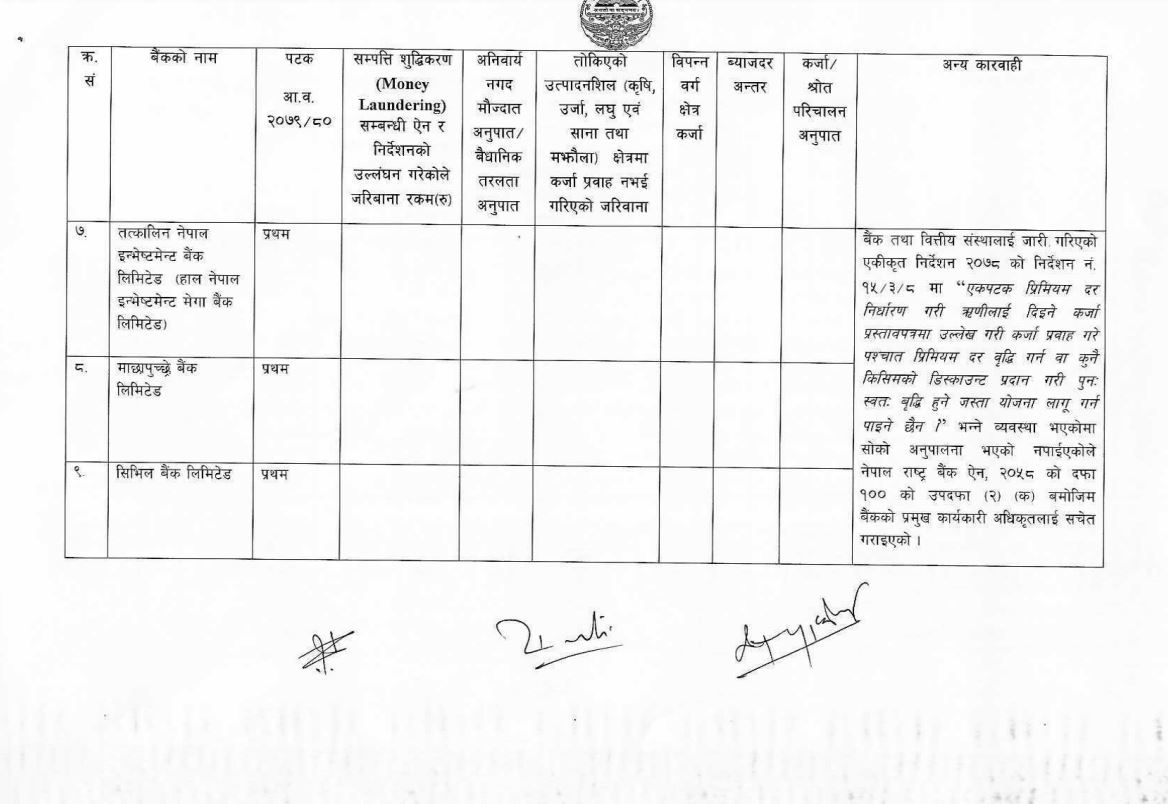 क्र.
सं
बैंकको नाम
पटक
आ.व.
२०७९/८०
सम्पत्ति शुद्धिकरण
(Money
Laundering)
सम्बन्धी ऐन र
निर्देशनको
उल्लंघन गरेकोले
जरिबाना रकम(रु)
अनिवार्य
नगद
मौज्दात
अनुपात/
बैधानिक
तरलता
अनुपात
तोकिएको
उत्पादनशिल (कृषि,
उर्जा, लघु एवं
साना तथा
मझौला) क्षेत्रमा
कर्जा प्रवाह नभई
गरिएको जरिवाना
विपन्न
वर्ग
क्षेत्र
कर्जा
ब्याजदर
अन्तर
कर्जा/
श्रोत
परिचालन
अनुपात
अन्य कारवाही
७.
तत्कालिन नेपाल
इन्भेष्टमेन्ट बैंक
लिमिटेड (हाल नेपाल
इन्भेष्टमेन्ट मेगा बैंक
लिमिटेड)
प्रथम
८.
माछापुच्छ्रे बैंक
लिमिटेड
प्रथम
९.
सिभिल बैंक लिमिटेड
प्रथम
बैंक तथा वित्तीय संस्थालाई जारी गरिएको
एकीकृत निर्देशन २०७८ को निर्देशन नं.
१५/३/८ मा “एकपटक प्रिमियम दर
निर्धारण गरी ऋणीलाई दिइने कर्जा
प्रस्तावपत्रमा उल्लेख गरी कर्जा प्रवाह गरे
पश्चात प्रिमियम दर वृद्धि गर्न वा कुनै
किसिमको डिस्काउन्ट प्रदान गरी पुनः
स्वतः वृद्धि हुने जस्ता योजना लागू गर्न
पाइने छैन ।” भन्ने व्यवस्था भएकोमा
सोको अनुपालना भएको नपाईएकोले
नेपाल राष्ट्र बैंक ऐन, २०५८ को दफा
१०० को उपदफा (२) (क) बमोजिम
बैंकको प्रमुख कार्यकारी अधिकृतलाई सचेत
गराइएको ।